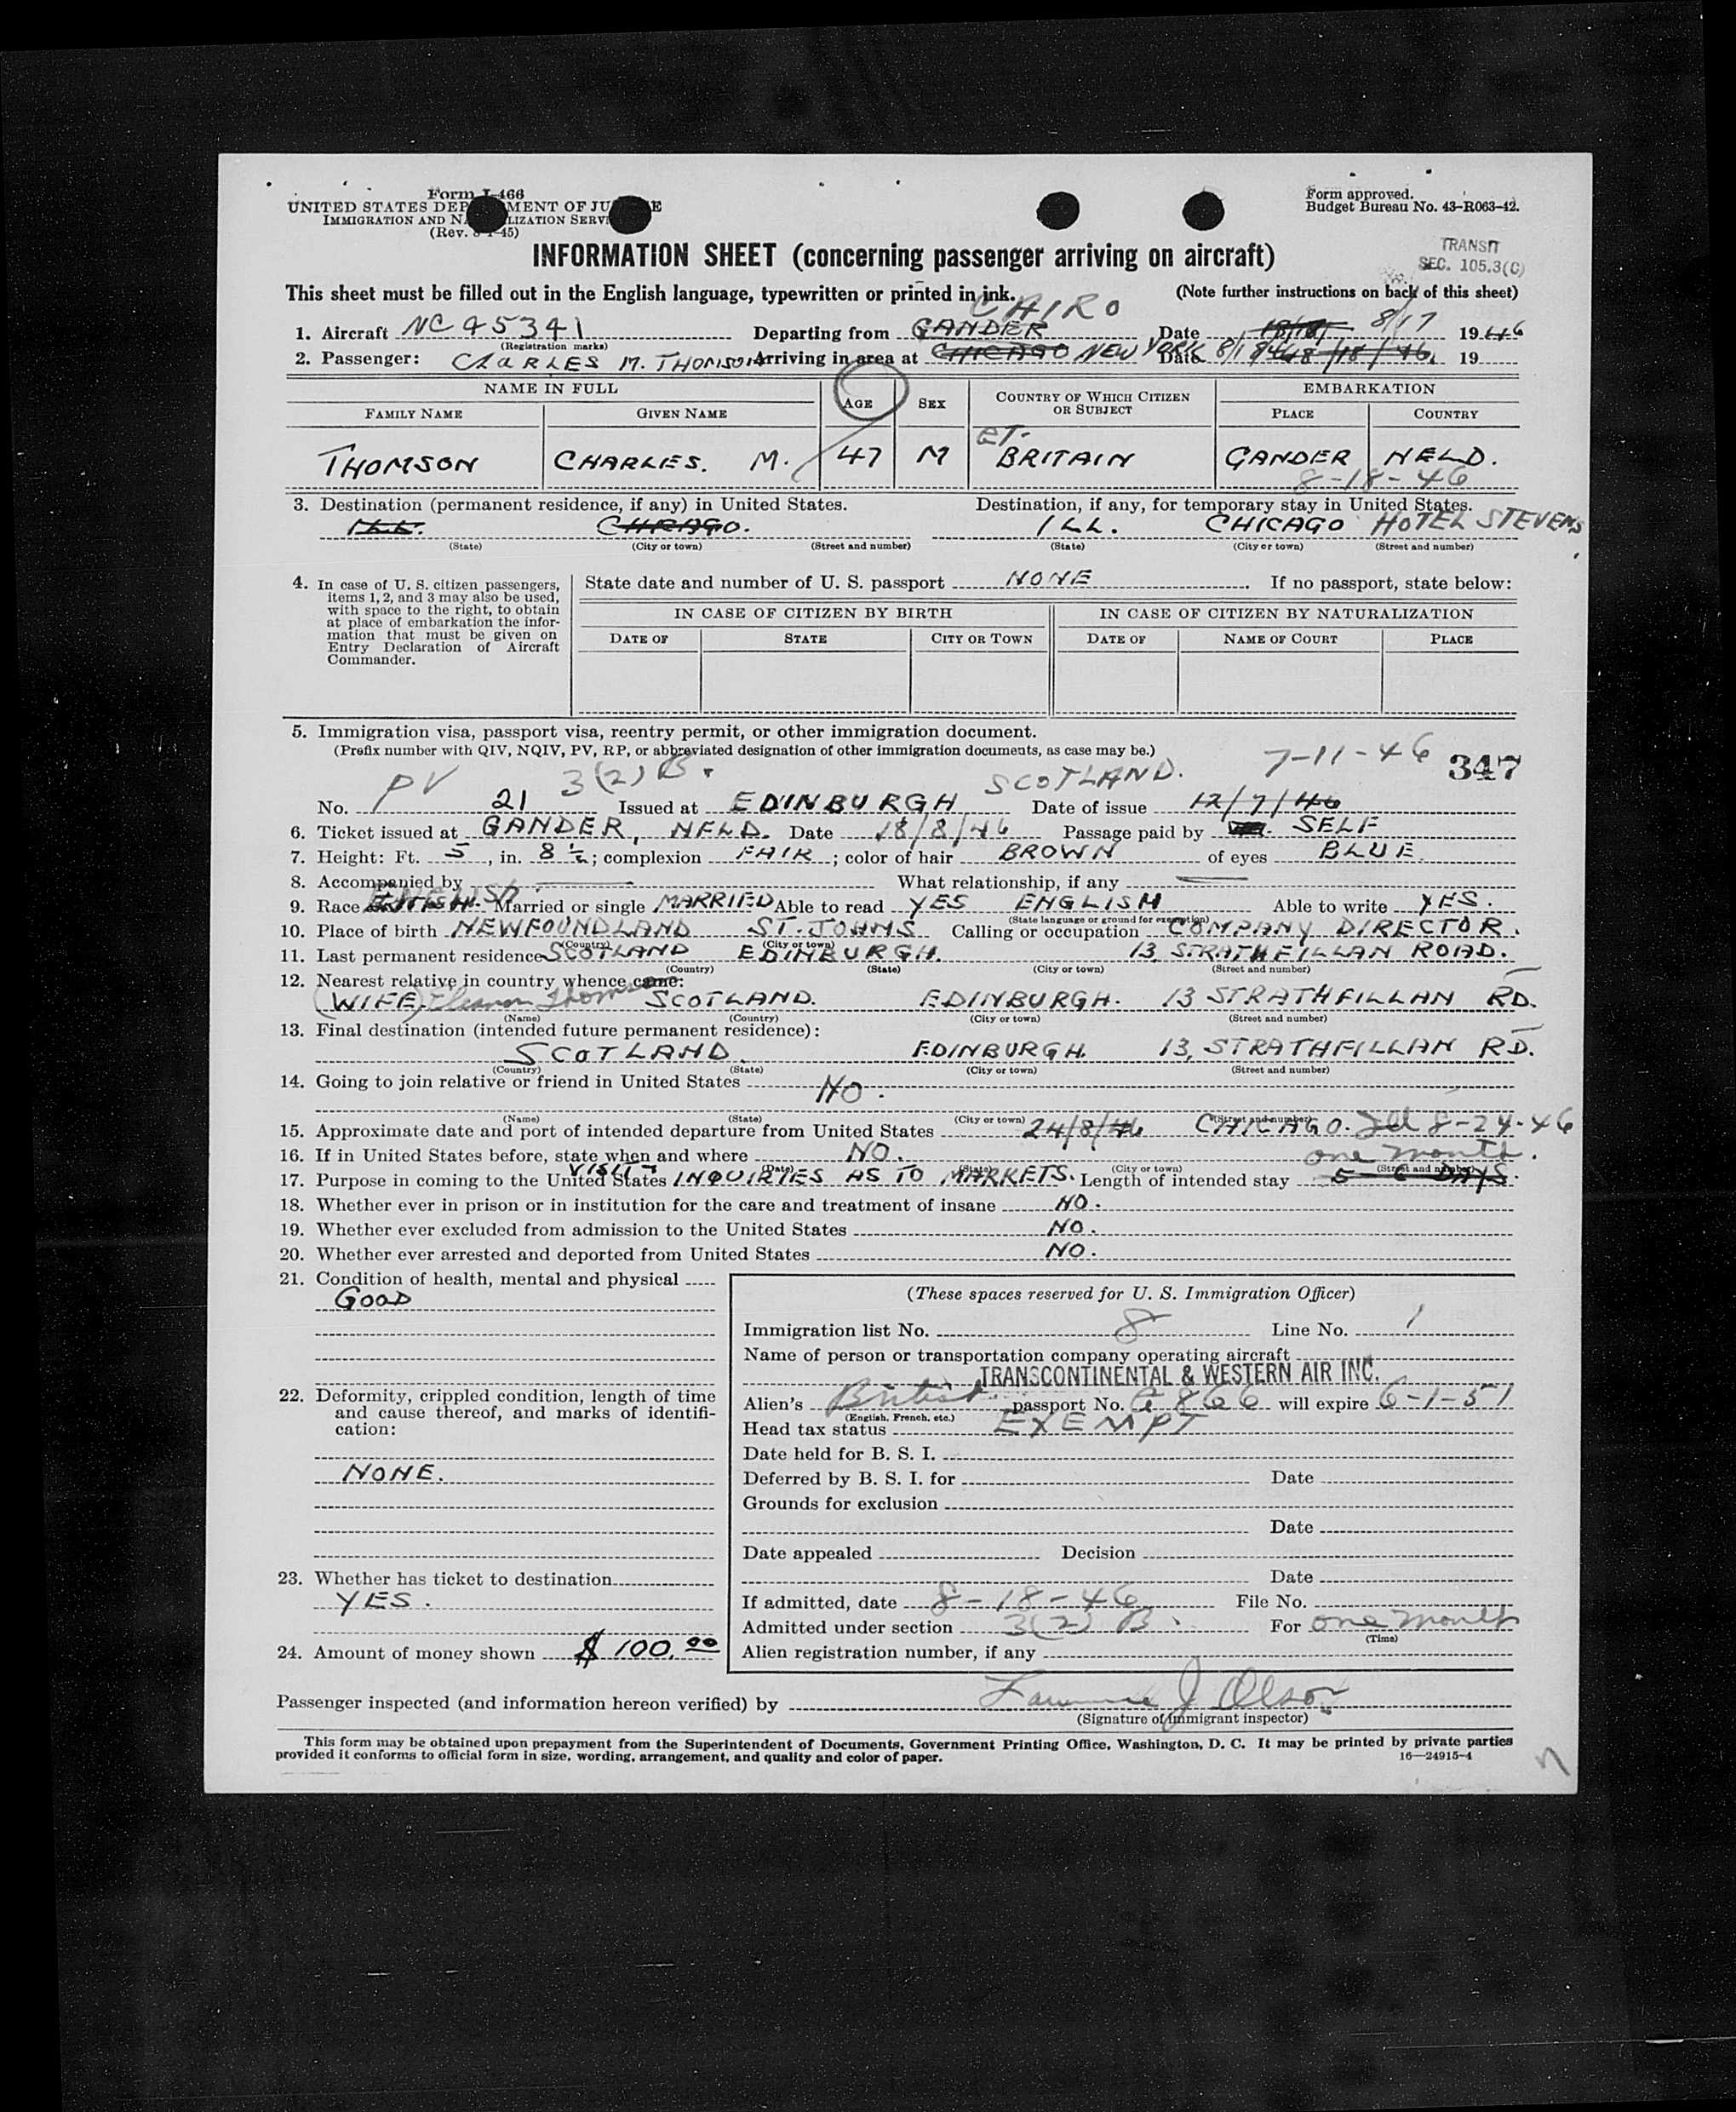 Form I-466
UNITED STATES DEP MENT OF JU E
IMMIGRATION AND N LIZATION SERV
(Rev. 8-1-45)
Form approved.
Budget Bureau No. 43-R063-42.
INFORMATION SHEET (concerning passenger arriving on aircraft)
TRANSIT
SEC. 105.3(C)
This sheet must be filled out in the English language, typewritten or printed in ink. (Note further instructions on back of this sheet)
CAIRO
1. Aircraft NC 45341 Departing from GANDER Date 8/17 1946
(Registration marks)
2. Passenger: CHARLES M. THOMSON Arriving in area at CHICAGO NEW YORK Date 8/18/46 18/18/46 19
NAME IN FULL AGE SEX COUNTRY OF WHICH CITIZEN OR SUBJECT EMBARKATION
FAMILY NAME GIVEN NAME PLACE COUNTRY
THOMSON CHARLES. M. 47 M GT. BRITAIN GANDER NFLD.
8-18-46
3. Destination (permanent residence, if any) in United States. Destination, if any, for temporary stay in United States.
ILL. CHICAGO. ILL. CHICAGO HOTEL STEVENS
(State) (City or town) (Street and number) (State) (City or town) (Street and number)
4. In case of U. S. citizen passengers, items 1, 2, and 3 may also be used, with space to the right, to obtain at place of embarkation the information that must be given on Entry Declaration of Aircraft Commander.
State date and number of U. S. passport NONE If no passport, state below:
IN CASE OF CITIZEN BY BIRTH IN CASE OF CITIZEN BY NATURALIZATION
DATE OF STATE CITY OR TOWN DATE OF NAME OF COURT PLACE
5. Immigration visa, passport visa, reentry permit, or other immigration document.
(Prefix number with QIV, NQIV, PV, RP, or abbreviated designation of other immigration documents, as case may be.)
3(2) B. SCOTLAND. 7-11-46 347
No. PV 21 Issued at EDINBURGH Date of issue 12/7/46
6. Ticket issued at GANDER, NFLD. Date 18/8/46 Passage paid by SELF
7. Height: Ft. 5, in. 8 ½; complexion FAIR; color of hair BROWN of eyes BLUE
8. Accompanied by What relationship, if any
9. Race ENGLISH Married or single MARRIED Able to read YES ENGLISH Able to write YES.
(State language or ground for exemption)
10. Place of birth NEWFOUNDLAND ST. JOHNS Calling or occupation COMPANY DIRECTOR.
(Country) (City or town)
11. Last permanent residence SCOTLAND EDINBURGH. 13, STRATHFILLAN ROAD.
(Country) (State) (City or town) (Street and number)
12. Nearest relative in country whence came:
(WIFE) Eleanor Thomson SCOTLAND. EDINBURGH. 13 STRATHFILLAN RD.
(Name) (Country) (City or town) (Street and number)
13. Final destination (intended future permanent residence):
SCOTLAND. EDINBURGH. 13, STRATHFILLAN RD.
(Country) (State) (City or town) (Street and number)
14. Going to join relative or friend in United States NO.
(Name) (State) (City or town) (Street and number)
15. Approximate date and port of intended departure from United States 24/8/46 CHICAGO. 8-24-46
16. If in United States before, state when and where NO. one month.
(Date) (State) (City or town) (Street and number)
17. Purpose in coming to the United States VISIT - INQUIRIES AS TO MARKETS. Length of intended stay 5 - 6 DAYS.
18. Whether ever in prison or in institution for the care and treatment of insane NO.
19. Whether ever excluded from admission to the United States NO.
20. Whether ever arrested and deported from United States NO.
21. Condition of health, mental and physical
GOOD
22. Deformity, crippled condition, length of time and cause thereof, and marks of identification:
NONE.
23. Whether has ticket to destination
YES.
24. Amount of money shown $100.00
(These spaces reserved for U. S. Immigration Officer)
Immigration list No. 8 Line No. 1
Name of person or transportation company operating aircraft
TRANSCONTINENTAL & WESTERN AIR INC.
Alien's British passport No. C 866 will expire 6-1-51
(English, French, etc.)
Head tax status EXEMPT
Date held for B. S. I.
Deferred by B. S. I. for Date
Grounds for exclusion
Date
Date appealed Decision
Date
If admitted, date 8-18-46 File No.
Admitted under section 3(2) B. For one month
(Time)
Alien registration number, if any
Passenger inspected (and information hereon verified) by Lawrence J Olson
(Signature of immigrant inspector)
This form may be obtained upon prepayment from the Superintendent of Documents, Government Printing Office, Washington, D. C. It may be printed by private parties
provided it conforms to official form in size, wording, arrangement, and quality and color of paper. 16—24915-4